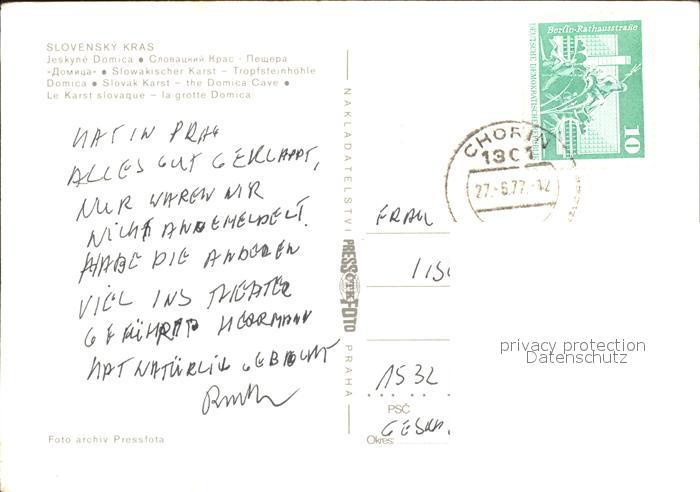 SLOVENSKÝ KRAS
Jeskyně Domica • Словацкий Крас - Пещера
«Домица» • Slowakischer Karst – Tropfsteinhöhle
Domica • Slovak Karst – the Domica Cave •
Le Karst slovaque – la grotte Domica
HAT IN PRAG
ALLES GUT GEKLAPPT,
NUR WAREN WIR
NICHT ANGEMELDET.
HABE DIE ANDEREN
VIEL INS THEATER
GEFÜHRT HERRMANN
HAT NATÜRLICH GEBUCHT
Foto archiv Pressfota
NAKLADATELSTVÍ PRESSFOTO PRAHA
Berlin-Rathausstraße
10
CHORIN
1301
27.-6.77.-12
FRAU
1532
PSČ
Okres:
privacy protection
Datenschutz